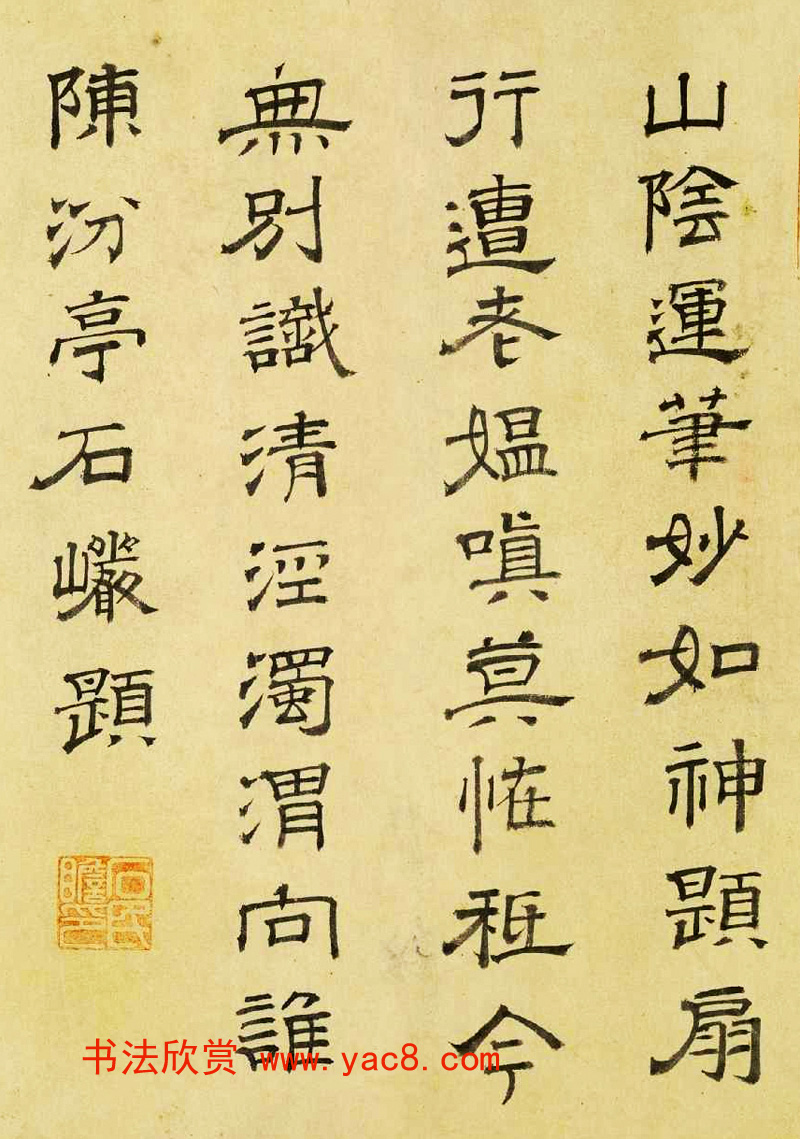 山陰運筆妙如神題扇
行遭老媼嗔莫恠秪今
無別識清涇濁渭向誰
陳汾亭石巖題
石民瞻印
书法欣赏 www.yac8.com